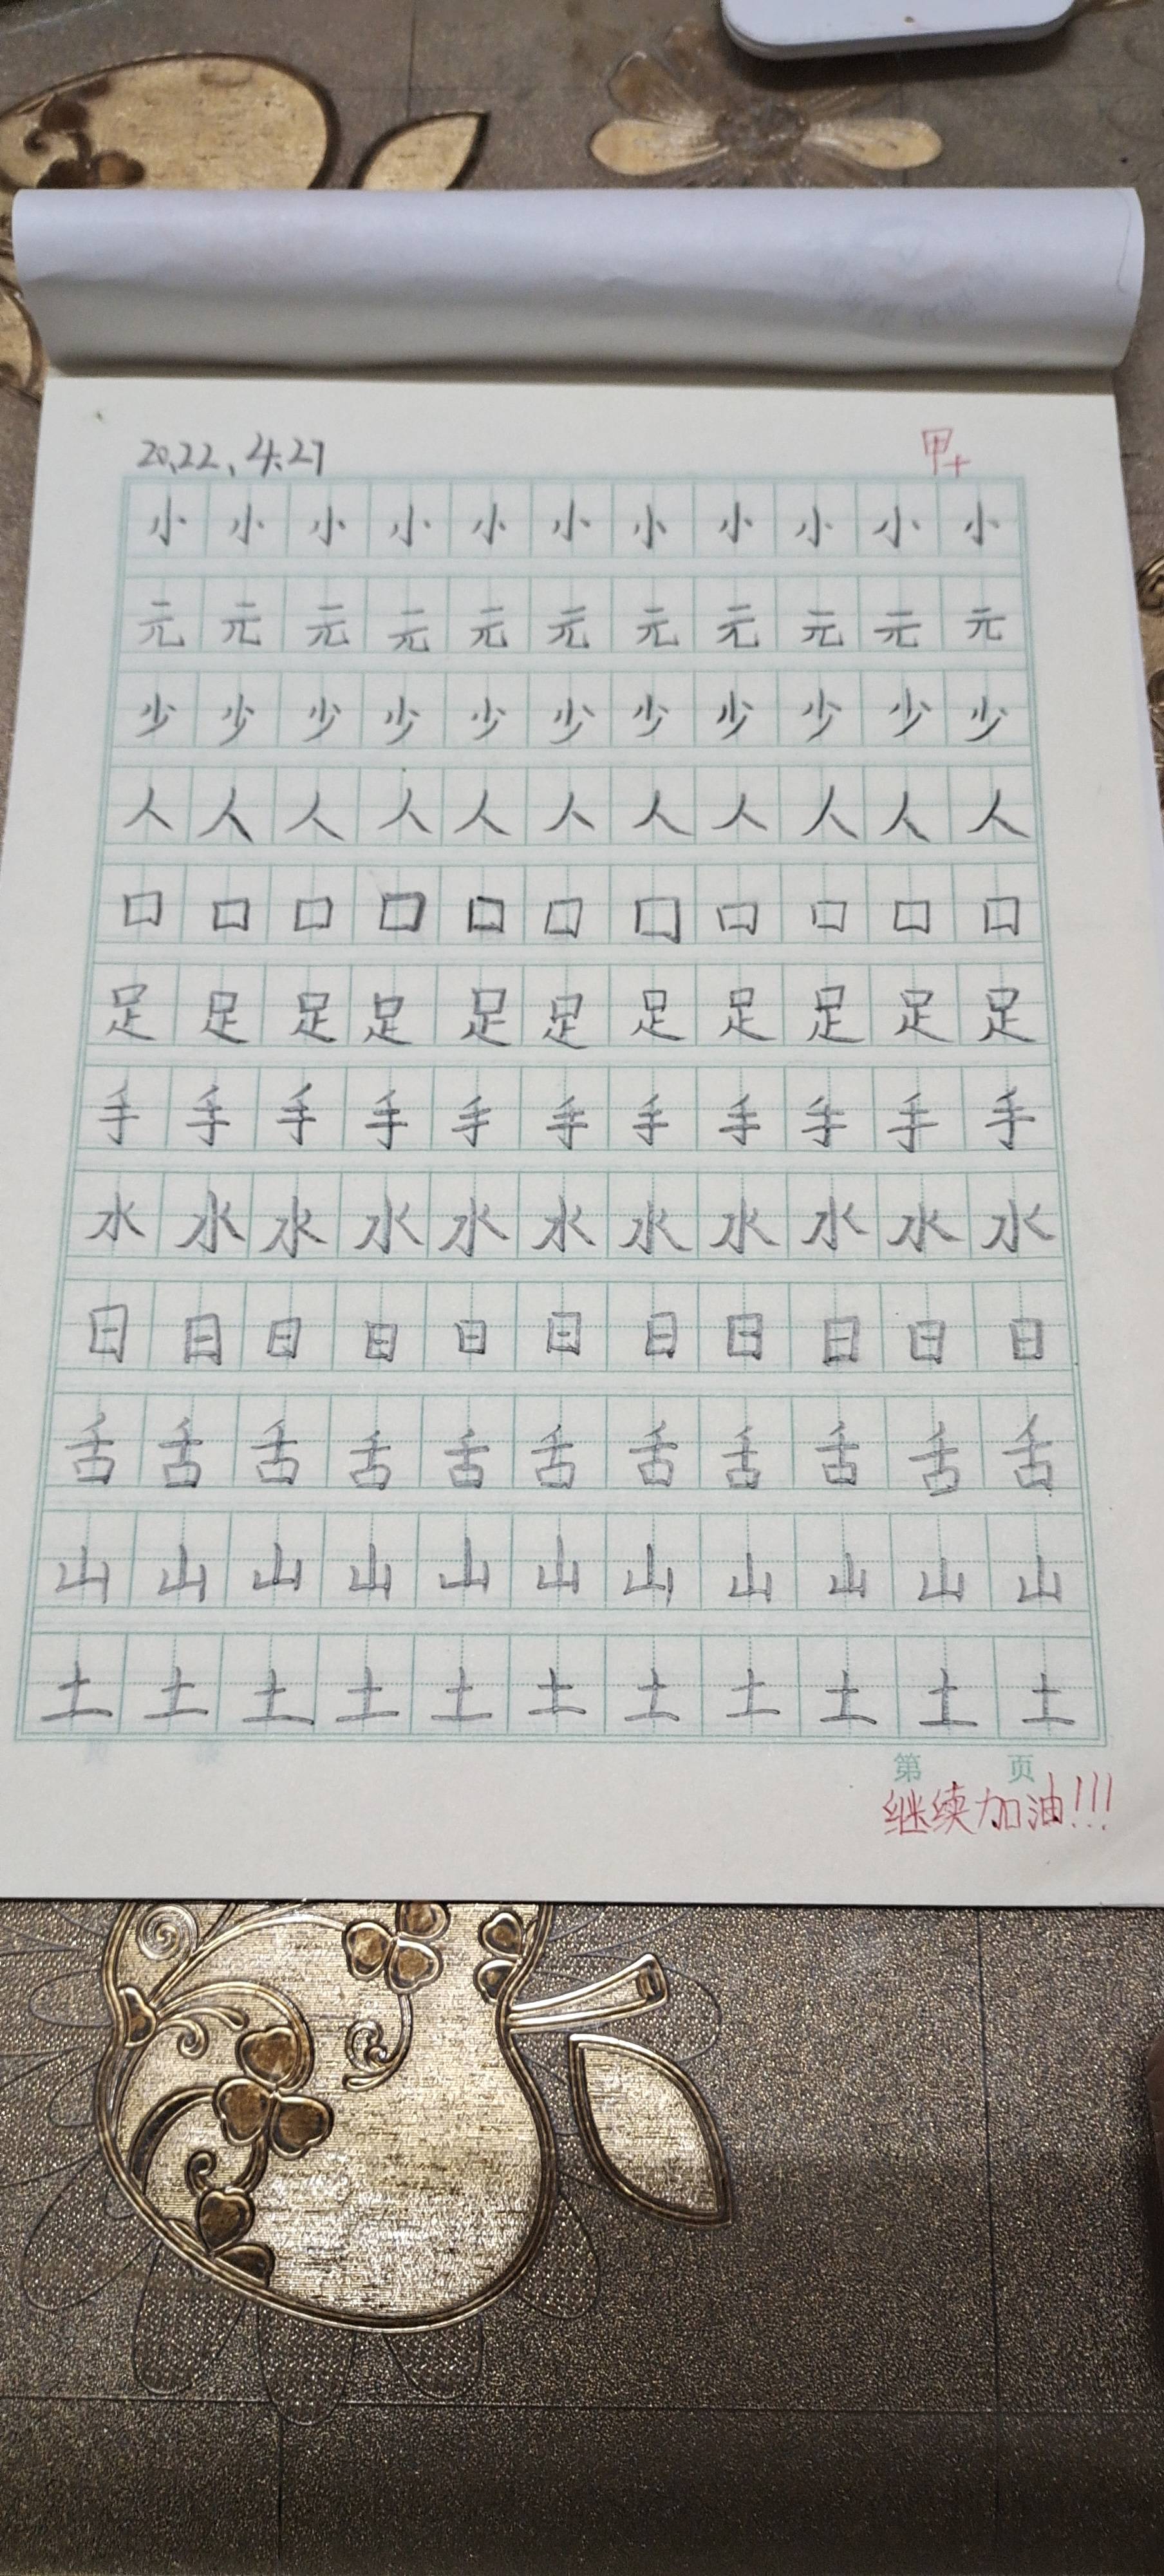 20,22、4.27 甲+
小小小小小小小小小小小
元元元元元元元元元元元
少少少少少少少少少少少
人人人人人人人人人人人
口口口口口口口口口口口
足足足足足足足足足足足
手手手手手手手手手手手
水水水水水水水水水水水
日日日日日日日日日日日
舌舌舌舌舌舌舌舌舌舌舌
山山山山山山山山山山山
土土土土土土土土土土土
第 页
继续加油!!!